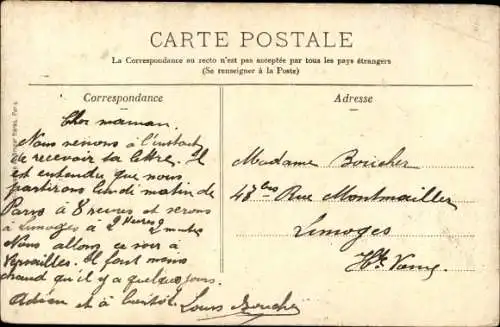 CARTE POSTALE
La Correspondance au recto n'est pas acceptée par tous les pays étrangers
(Se renseigner à la Poste)
Correspondance
Adresse
Cher maman.
Nous venons à l'instant
de recevoir ta lettre. Il
est entendu que nous
partirons lundi matin de
Paris à 8 heures et serons
à Limoges à 2 heures 2 minutes
Nous allons ce soir à
Versailles. Il fait moins
chaud qu'il y a quelques jours.
Adieu et à bientôt Louis Boucher
Madame Boucher
43 bis Rue Montmailler
Limoges
Hte Vienne
Paris